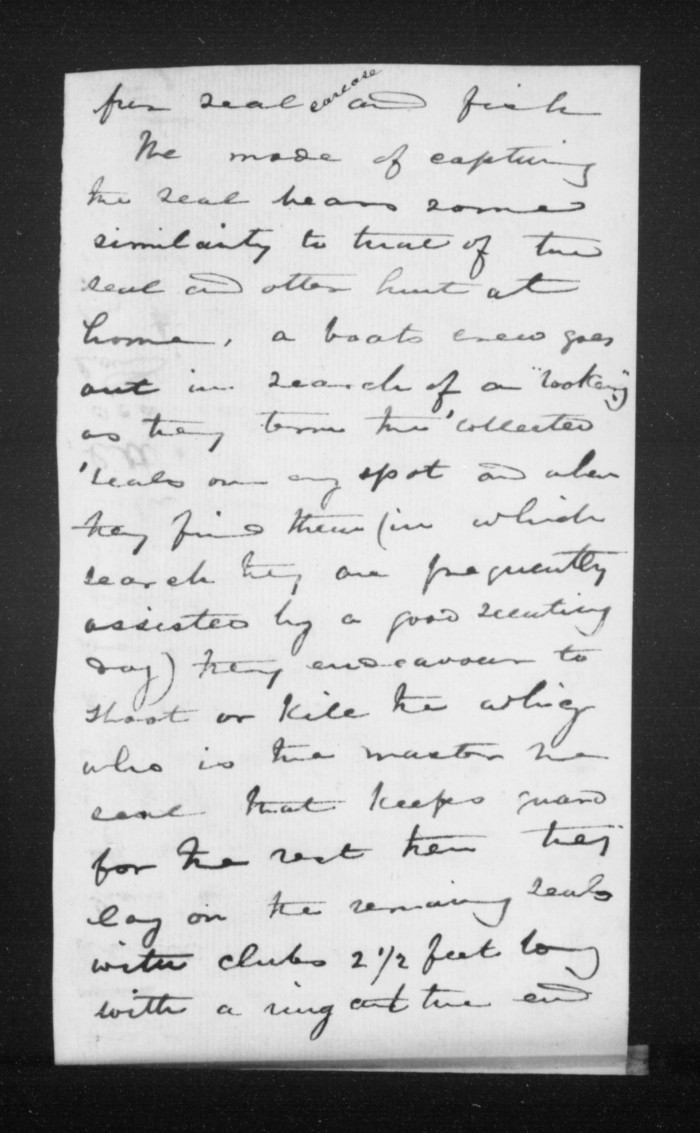 fur seal carcase and fish
The mode of capturing
the seal bears some
similarity to that of the
seal and otter hunt at
home, a boats crew goes
out in search of a "rookery"
as they term the 'collected
'seals on any spot and when
they find them (in which
search they are frequently
assisted by a good scenting
dog) they endeavour to
shoot or kill the whig
who is the master he
seal that keeps guard
for the rest then they
lay on the remaining seals
with clubs 2 1/2 feet long
with a ring at the end